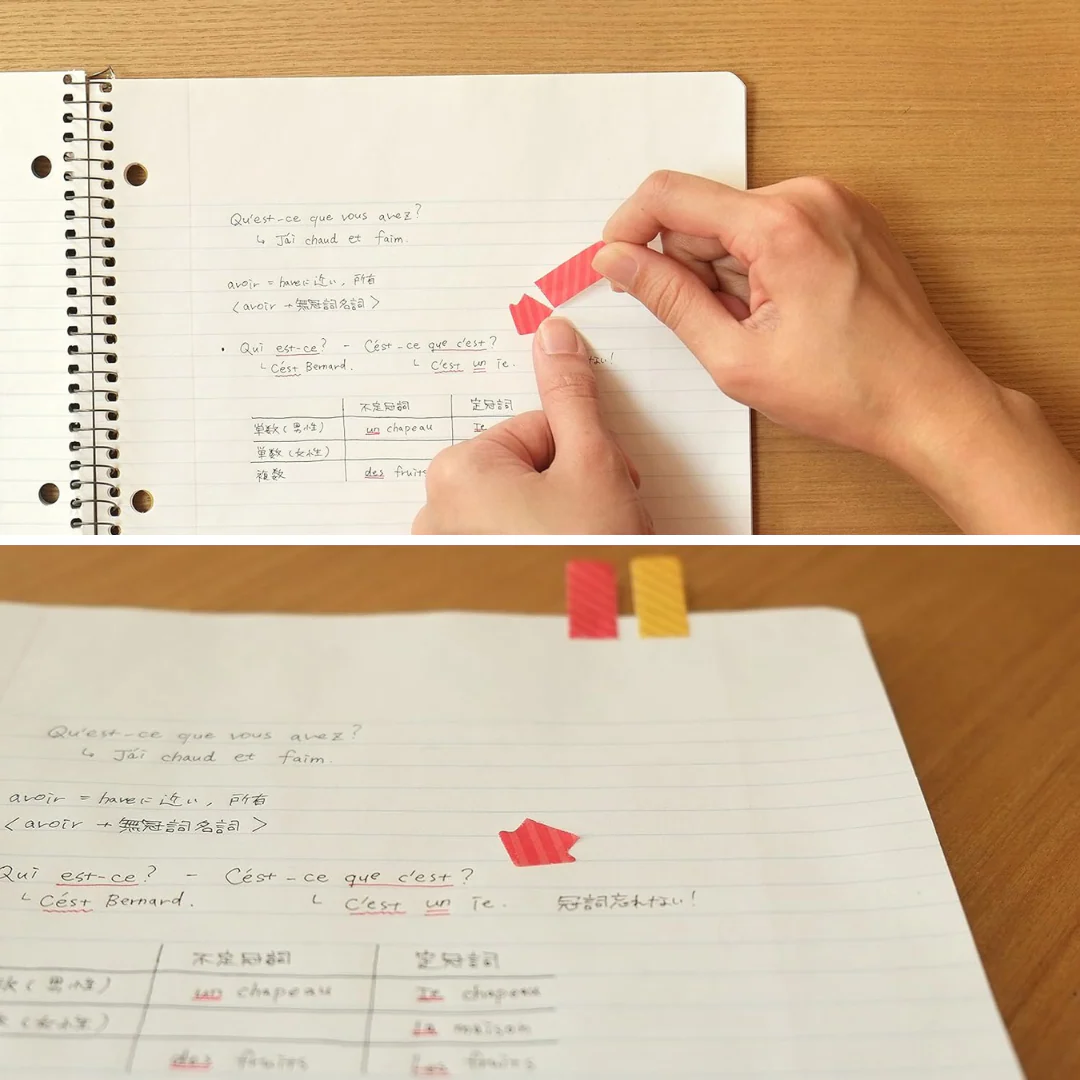 Qu'est-ce que vous avez?
↳ J'ai chaud et faim.
avoir = haveに近い, 所有
〈avoir + 無冠詞名詞〉
• Qui est-ce? - Cést-ce que c'est?
└ Cést Bernard. └ C'est un ie. ない!
不定冠詞 定冠詞
単数(男性) un chapeau Ie
単数(女性)
複数 des fruits
Qu'est-ce que vous avez?
↳ J'ai chaud et faim.
avoir = haveに近い, 所有
〈avoir + 無冠詞名詞〉
Qui est-ce? - Cést-ce que c'est?
└ Cést Bernard. └ C'est un ie. 冠詞忘れない!
不定冠詞 定冠詞
数(男性) un chapeau Ie chapeau
(女性) la maison
des fruits les fruits